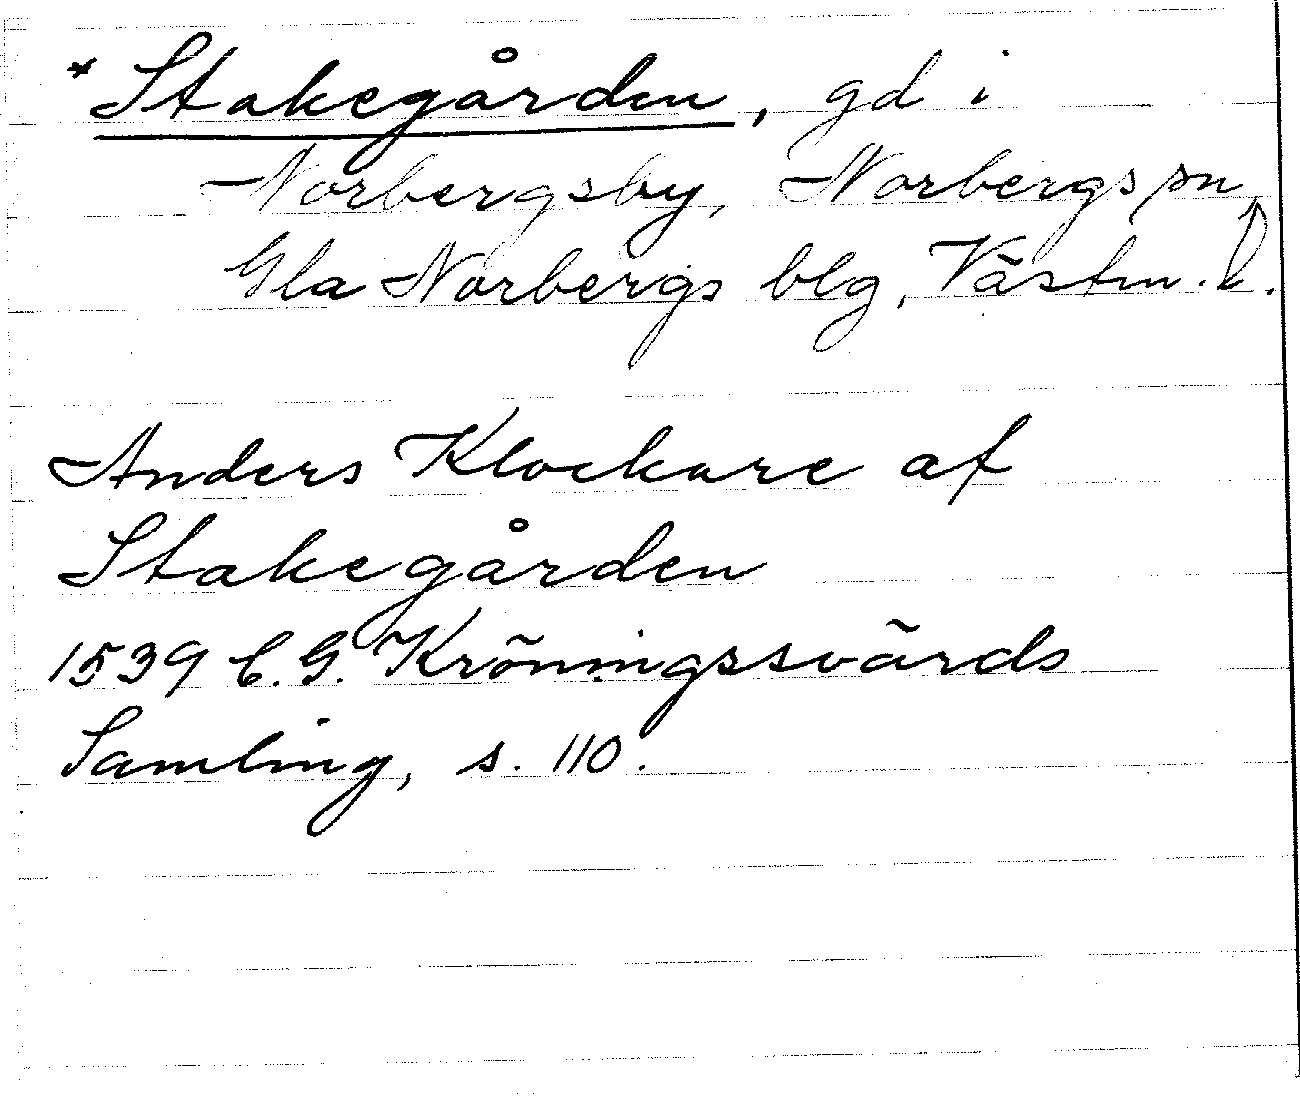 *Stakegården, gd i
Norbergsby, Norbergs sn,
Gla Norbergs blg, Västm. l.
Anders Klockare af
Stakegården
1539 C.G. Kröningssvärds
Samling, s. 110.